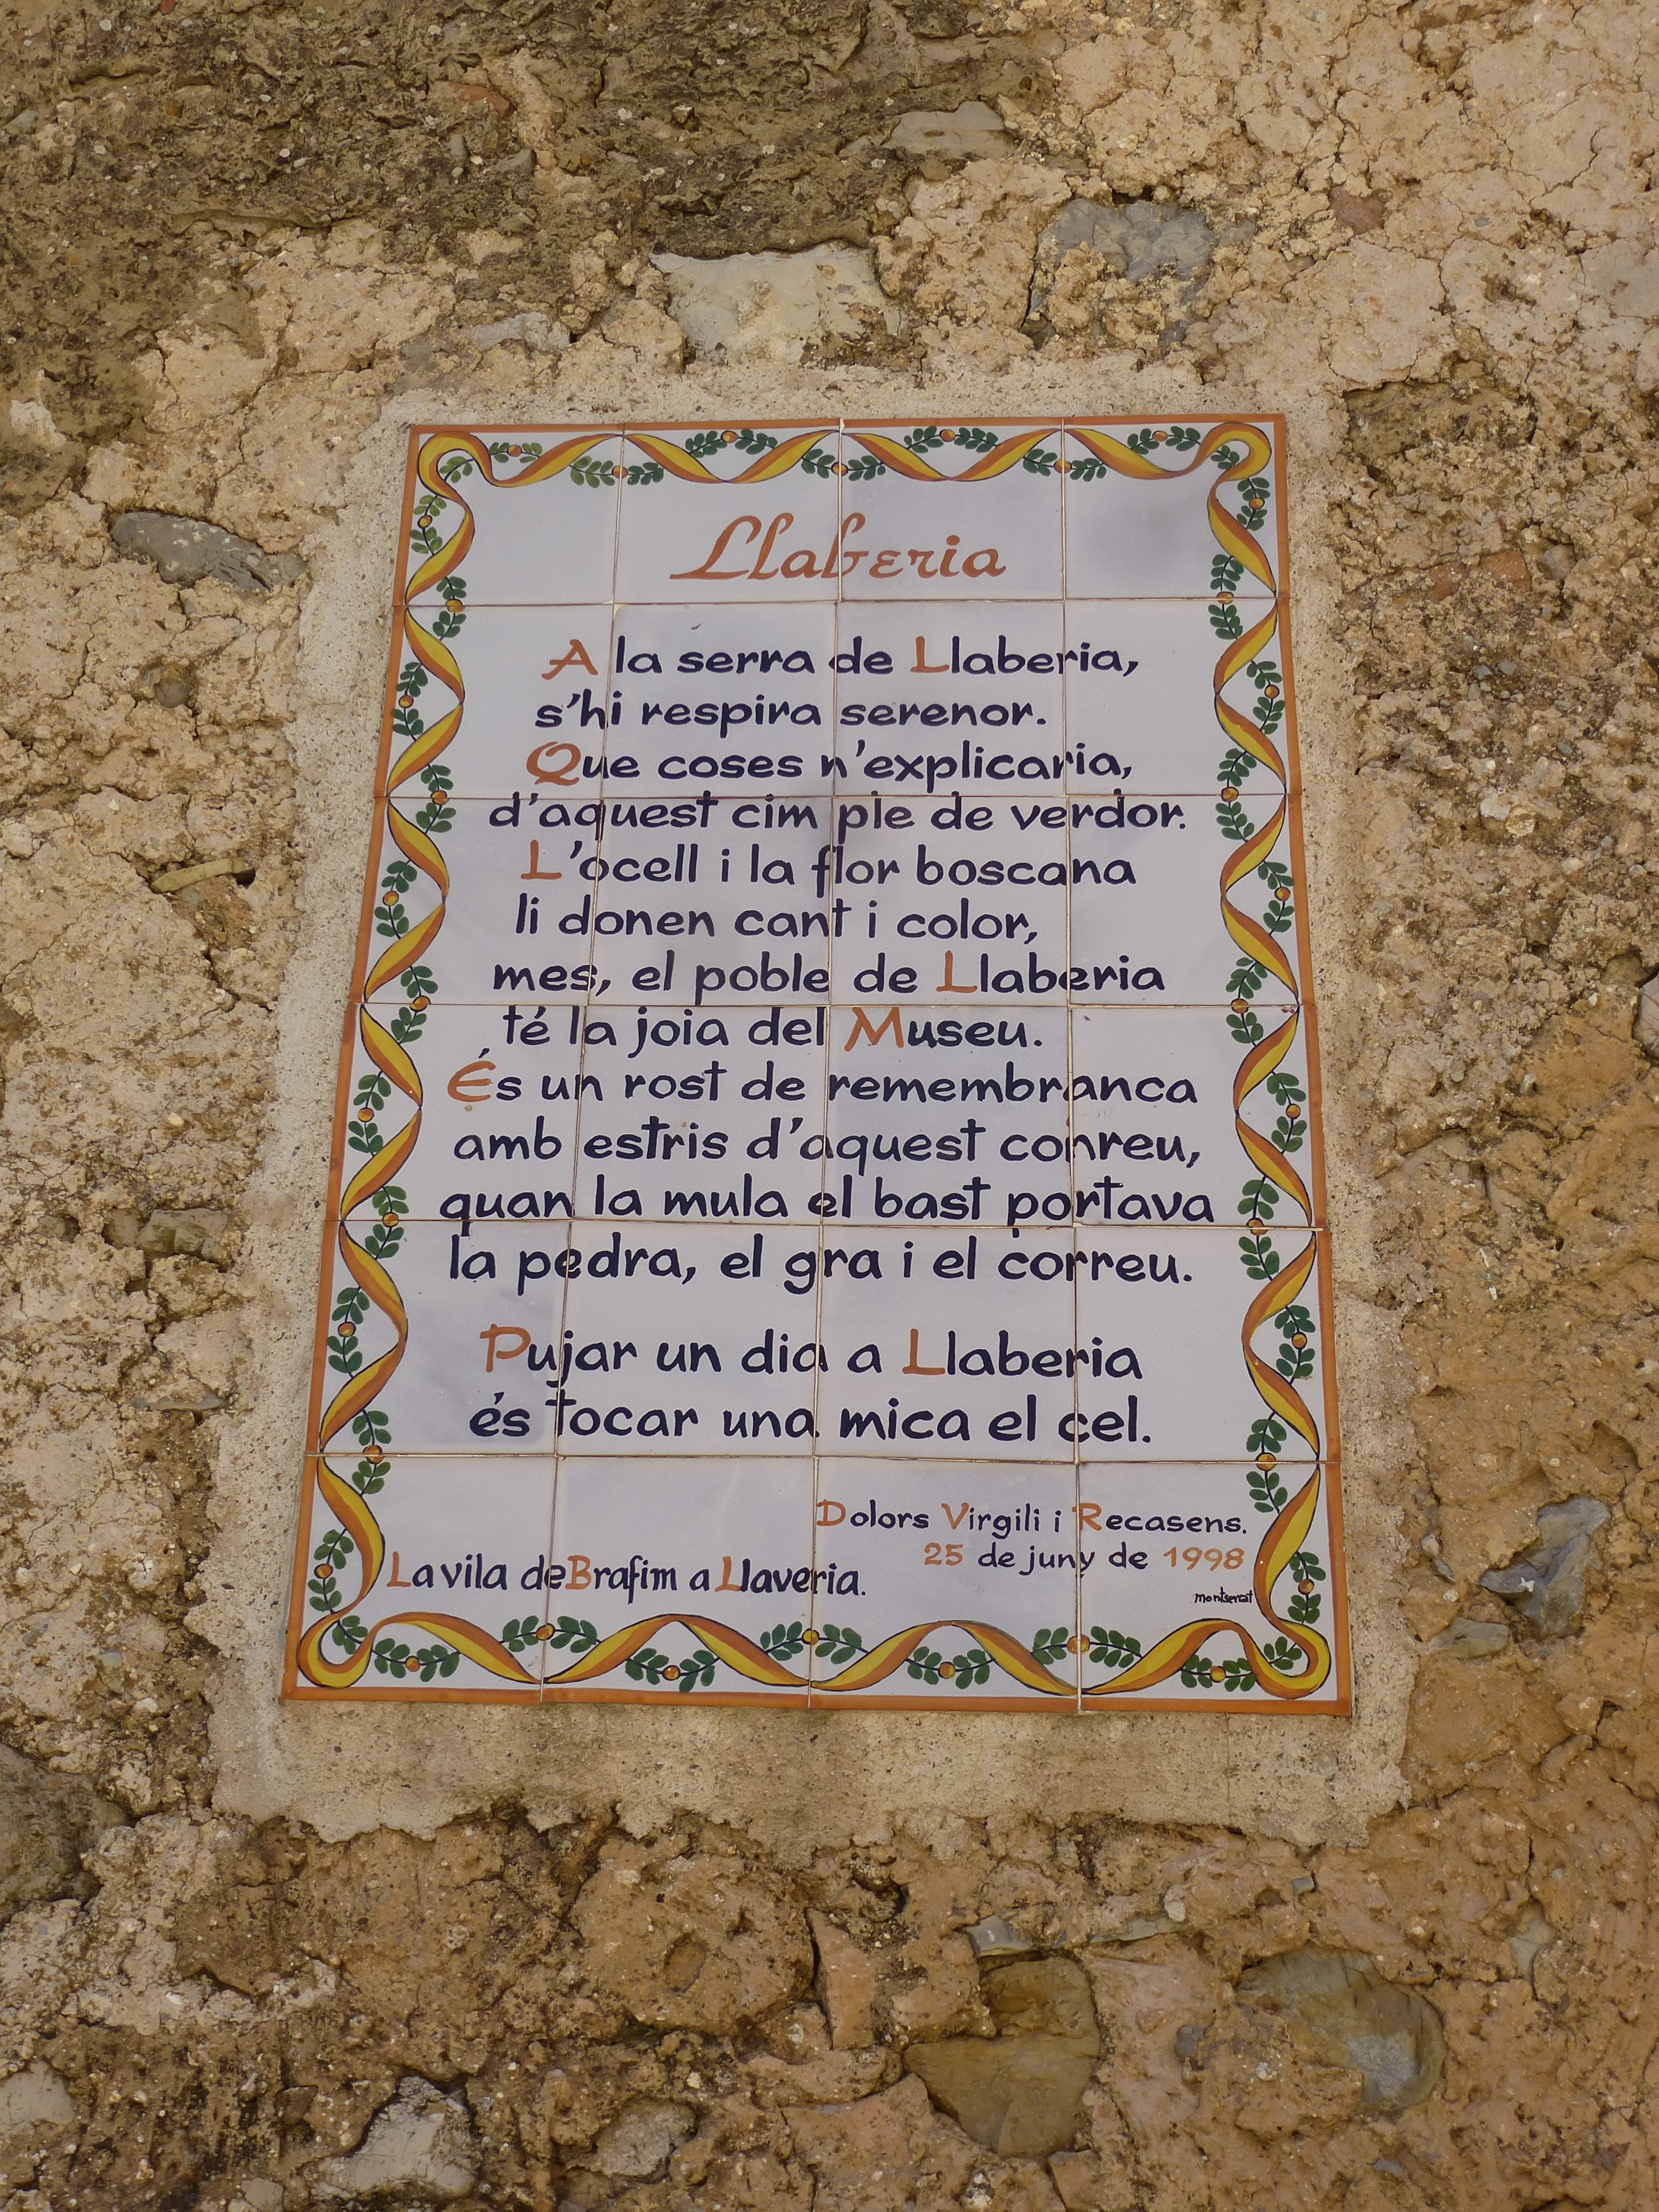 Llaberia
A la serra de Llaberia,
s'hi respira serenor.
Que coses n'explicaria,
d'aquest cim ple de verdor.
L'ocell i la flor boscana
li donen cant i color,
mes, el poble de Llaberia
té la joia del Museu.
És un rost de remembranca
amb estris d'aquest conreu,
quan la mula el bast portava
la pedra, el gra i el correu.
Pujar un dia a Llaberia
és tocar una mica el cel.
Dolors Virgili i Recasens.
25 de juny de 1998
La vila de Brafim a Llaveria.
montserrat